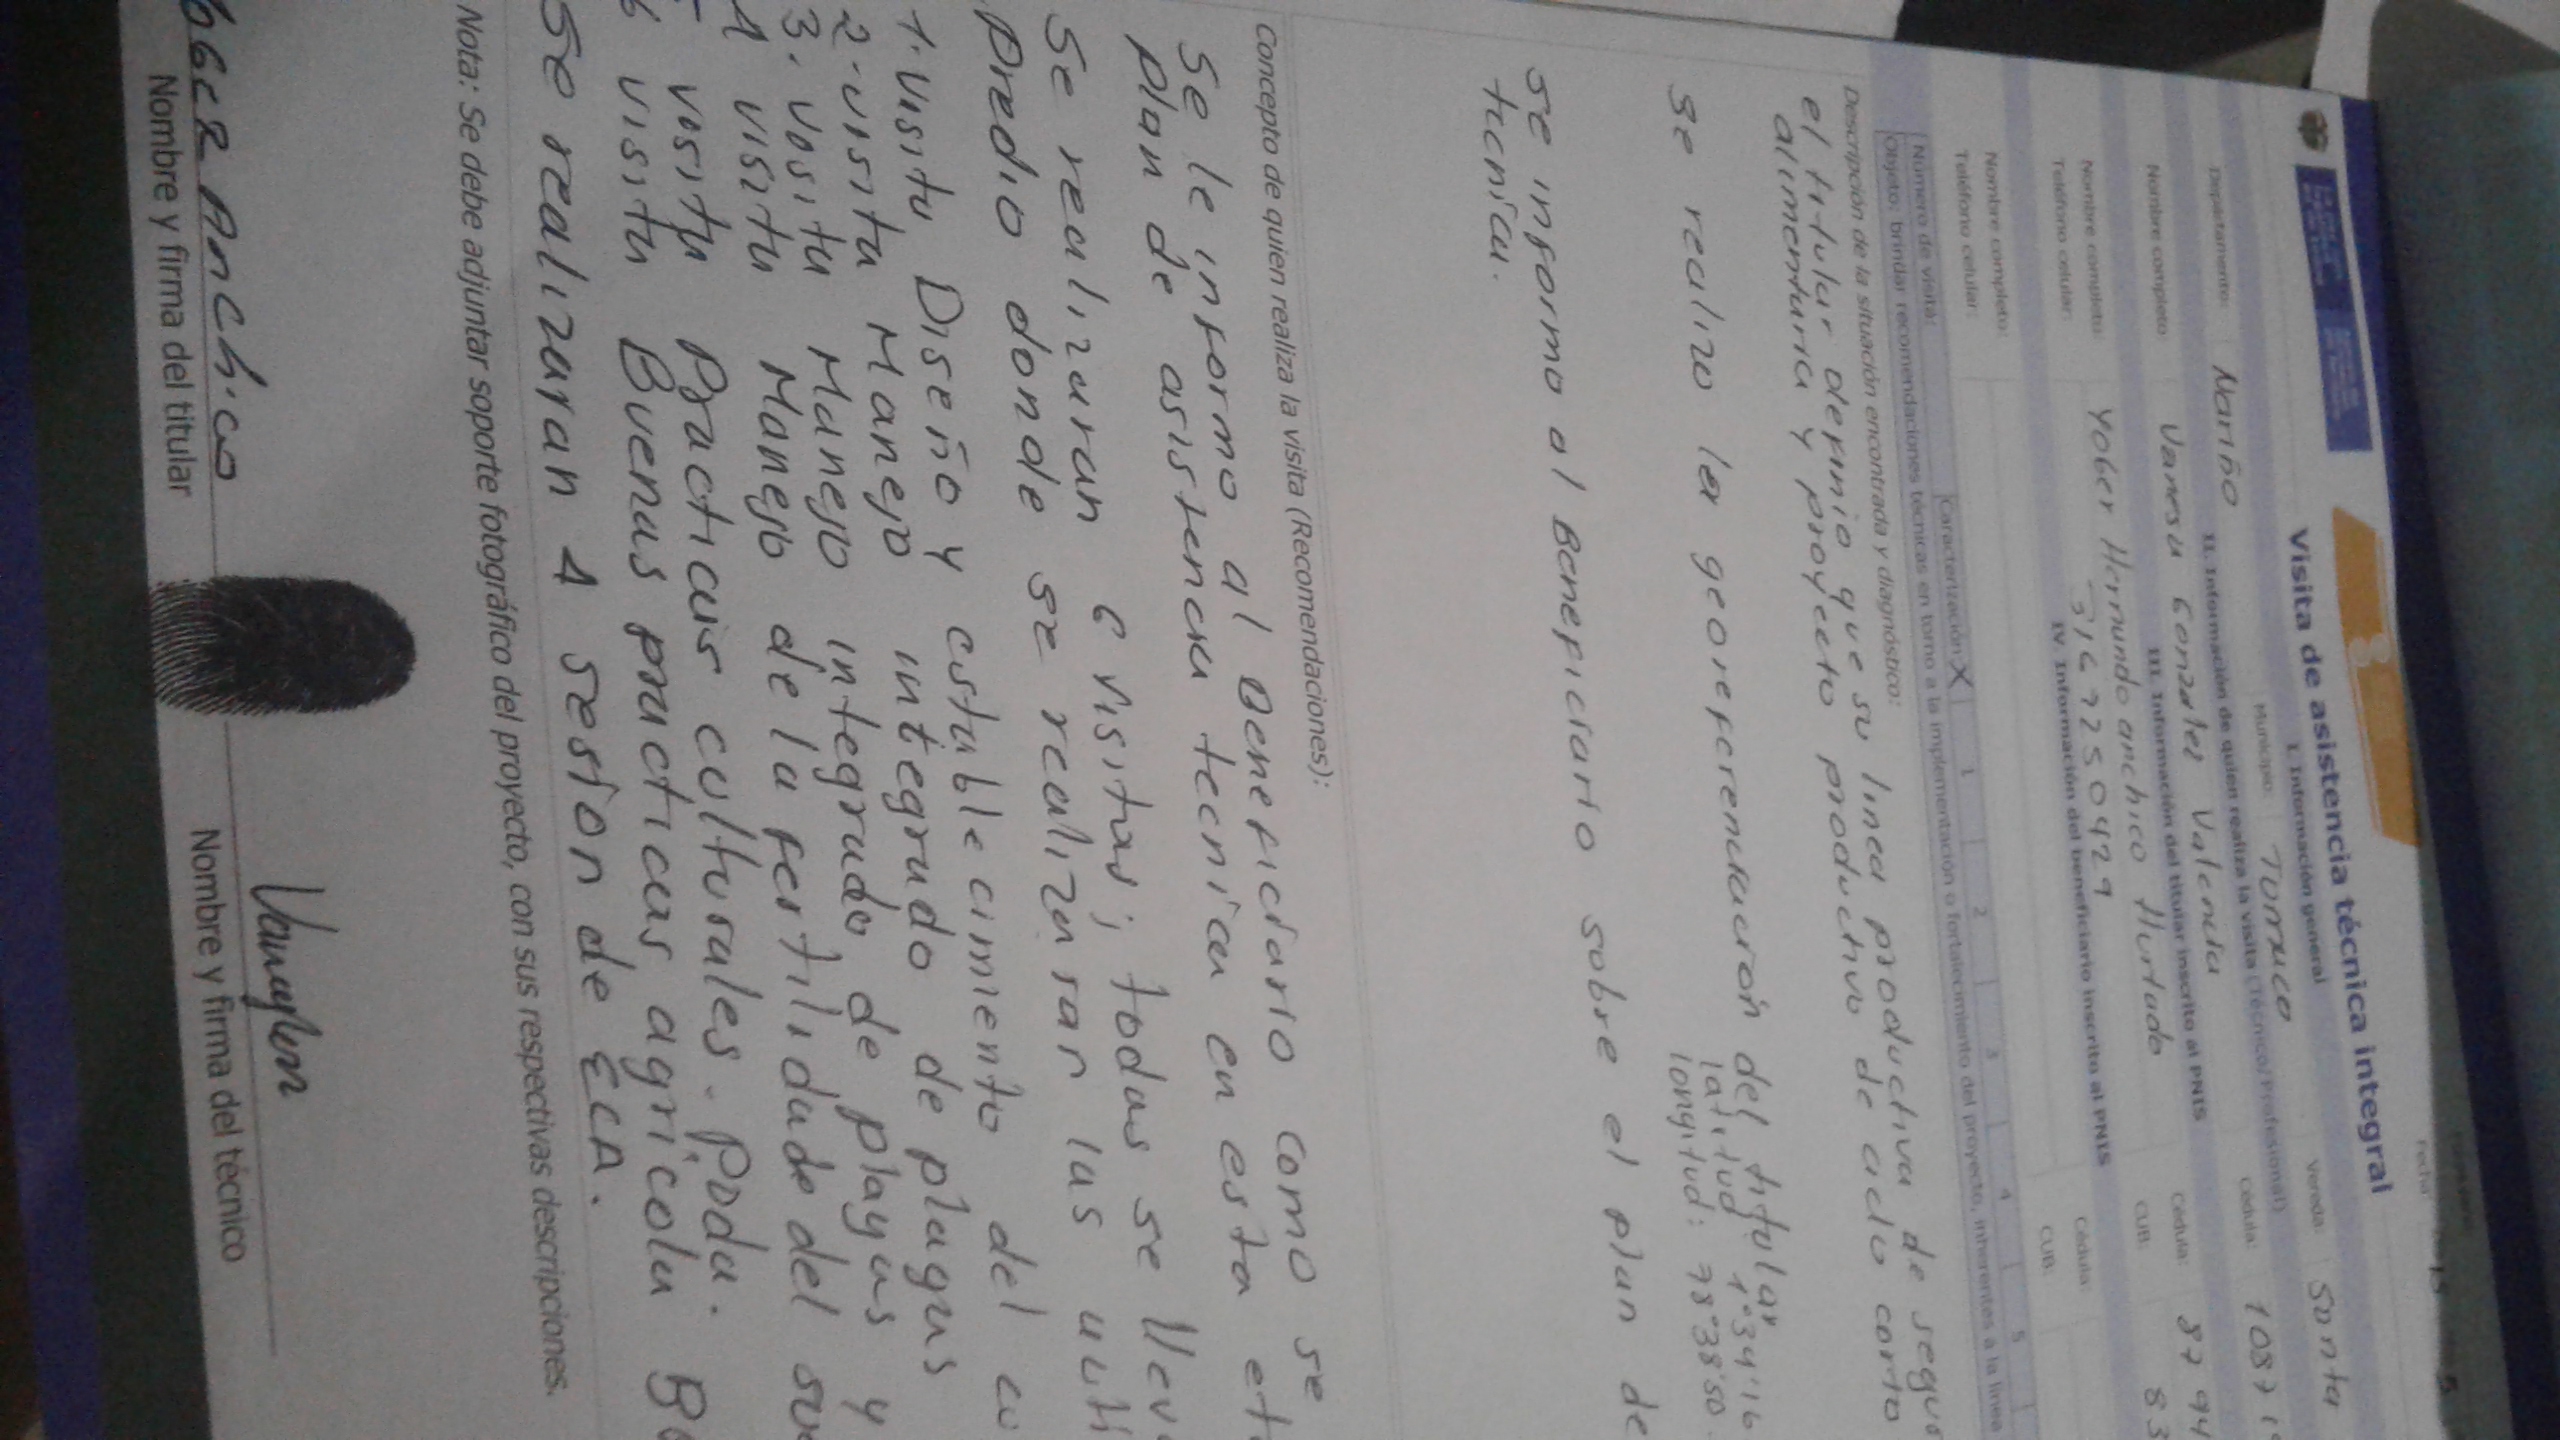 Visita de asistencia técnica integral
Fecha
I. Información general
Departamento: Nariño Municipio: Tumaco Vereda: Santa
II. Información de quien realiza la visita (Técnico/Profesional)
Nombre completo Vanesu Gonzalez Valencia Cédula: 1087
III. Información del titular inscrito al PNIS
Nombre completo: Yober Hernando anchico Hurtado Cédula: 87 94
Teléfono celular: 3167250429 CUB: 83
IV. Información del beneficiario inscrito al PNIS
Nombre completo: Cédula:
Teléfono celular: CUB:
Número de visita: Caracterización X 1 2 3 4 5
Objeto: brindar recomendaciones técnicas en torno a la implementación o fortalecimiento del proyecto, inherentes a la línea
Descripción de la situación encontrada y diagnóstico:
el titular definio que su linea productiva de segur
alimenturia y proyecto productivo de ciclo corto
se realizo la georeferenciación del titular
latitud 1°34'16
longitud: 78°38'50
se informo al Beneficiario sobre el plan de
tecnica.
Concepto de quien realiza la visita (Recomendaciones):
Se le informo al Beneficiario como se
plan de asistencia tecnica en esta et
Se realizaran 6 visitas; todas se llev
predio donde se realizaran las acti
1. Visita Diseño y establecimiento del cu
2. visita Manejo integrado de plagas
3. Visita Manejo integrado de plagas y
4 visita Manejo de la fertilidade del su
5 visita Practicas culturales. Poda.
6 visita Buenas practicas agricola B
Se realizaran 4 sesión de ECA.
Nota: Se debe adjuntar soporte fotográfico del proyecto, con sus respectivas descripciones.
ober Anchico
Nombre y firma del titular Nombre y firma del técnico